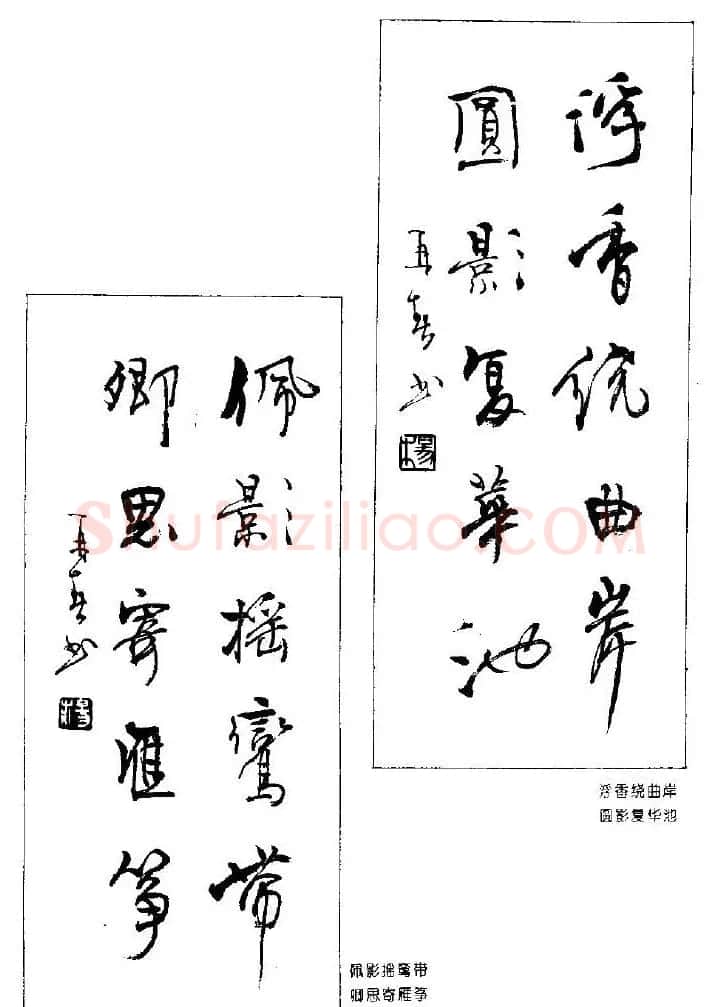 浮香绕曲岸
圓影复華池
再春书
楊
浮香绕曲岸
圆影复华池
佩影摇鸞帶
卿思寄雁筝
再春书
楊
佩影摇鸾带
卿思寄雁筝
Shufaziliao.COM